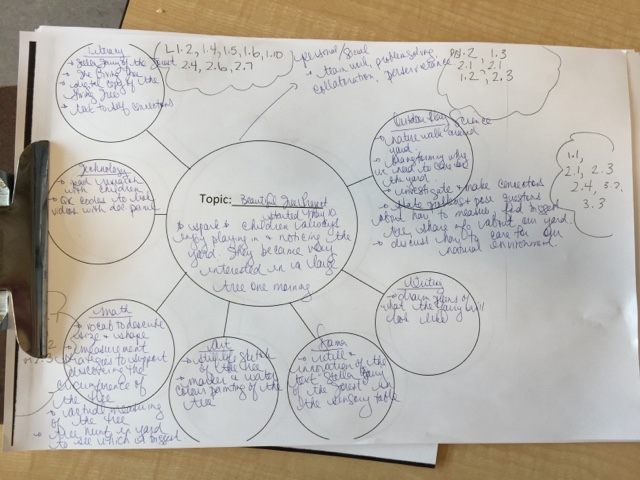 Literacy
Stella Fairy of the Forest
The Giving Tree
digital copy of the
Giving Tree
text to self connections
L1.2, 1.4, 1.5, 1.6, 1.10
2.4, 2.6, 2.7
personal/social
team work, problem solving
collaboration, perseverance
1.2, 1.3
2.1, 2.1
1.2, 2.3
Technology
read research
with children
QR codes to link
videos with doc panel
Topic: Beautiful Tree Project
started May 10
children always
enjoy playing in & noticing the
yard. They became very
interested in a large
tree one morning
Outdoor Play/Science
nature walk around
yard
need to care for
the yard
investigate & make connections
pose questions
about how to measure, find biggest
tree, share info about our yard.
discuss how to care for our
natural environment.
1.1,
2.1, 2.3
2.4, 3.2
3.3
Math
vocab to describe
size & shape
measurement
strategies to support
discovering the
circumference of
the tree
actual measuring
of the tree
tree hunt in yard
to see which is biggest
Art
study & sketch
of the tree
marker & water
colour painting of the
tree
Drama
retell &
innovation of the
text Stella Fairy
of the Forest in
the sensory table
Writing
draw plans of
what the fairy will
look like